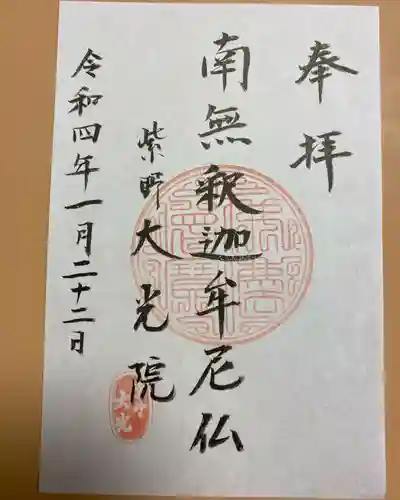 奉拝
南無釈迦牟尼仏
紫野大光院
令和四年一月二十二日